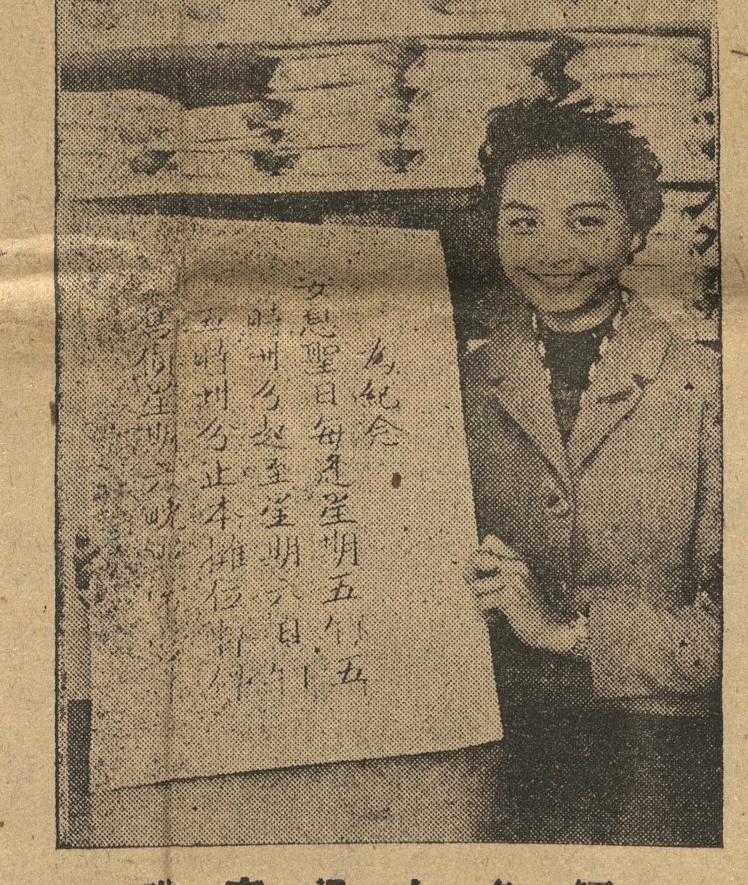 為紀念
安息聖日每逢星期五下午五
時卅分起至星期六日下午
五時卅分止本攤位暫停
星期六晚